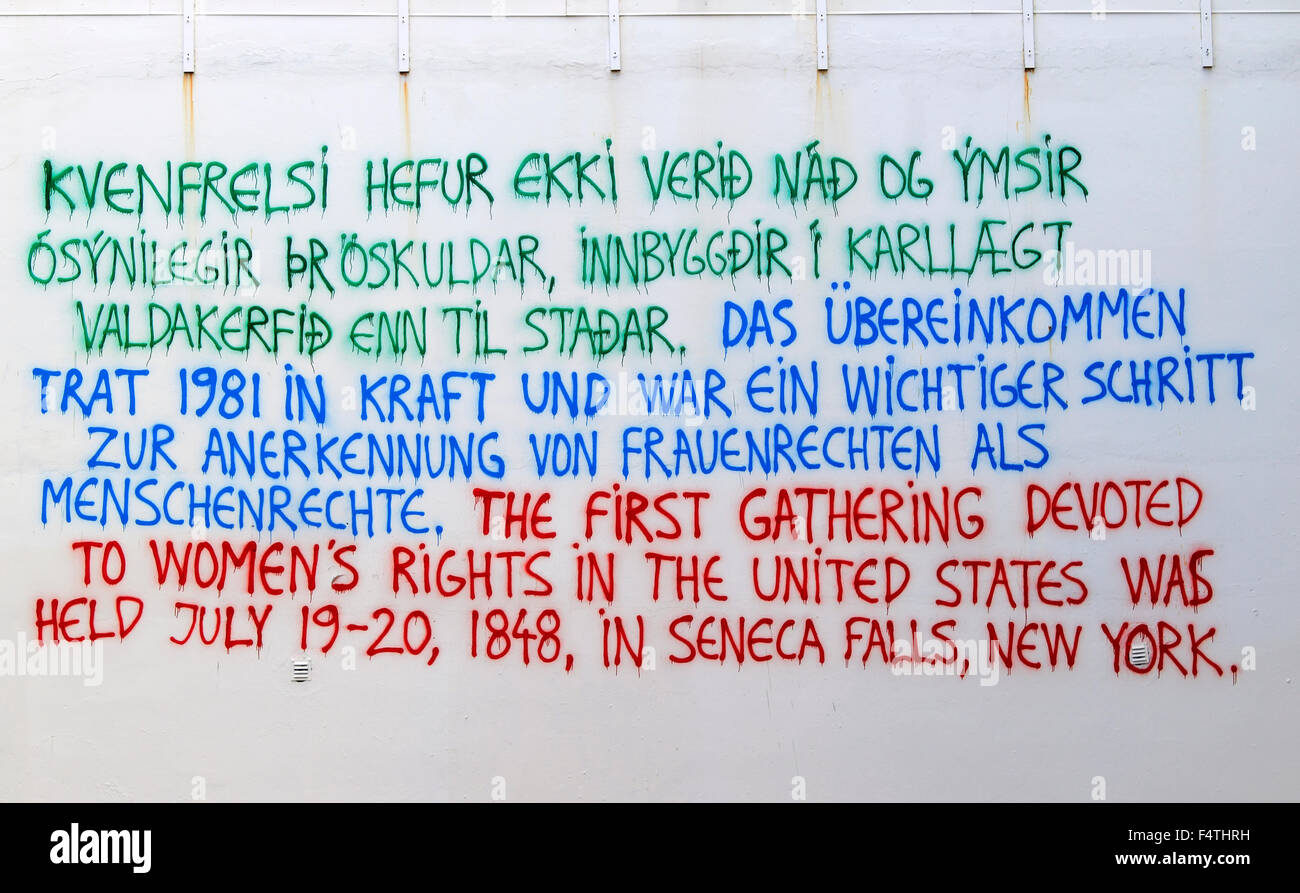 KVENFRELSI HEFUR EKKI VERIÐ NÁÐ OG ÝMSIR
ÓSÝNILEGIR ÞRÖSKULDAR, INNBYGGÐIR Í KARLLÆGT
VALDAKERFIÐ ENN TIL STAÐAR. DAS ÜBEREINKOMMEN
TRAT 1981 IN KRAFT UND WAR EIN WICHTIGER SCHRITT
ZUR ANERKENNUNG VON FRAUENRECHTEN ALS
MENSCHENRECHTE. THE FIRST GATHERING DEVOTED
TO WOMEN'S RIGHTS IN THE UNITED STATES WAS
HELD JULY 19-20, 1848, IN SENECA FALLS, NEW YORK.
alamy
Image ID: F4THRH
www.alamy.com